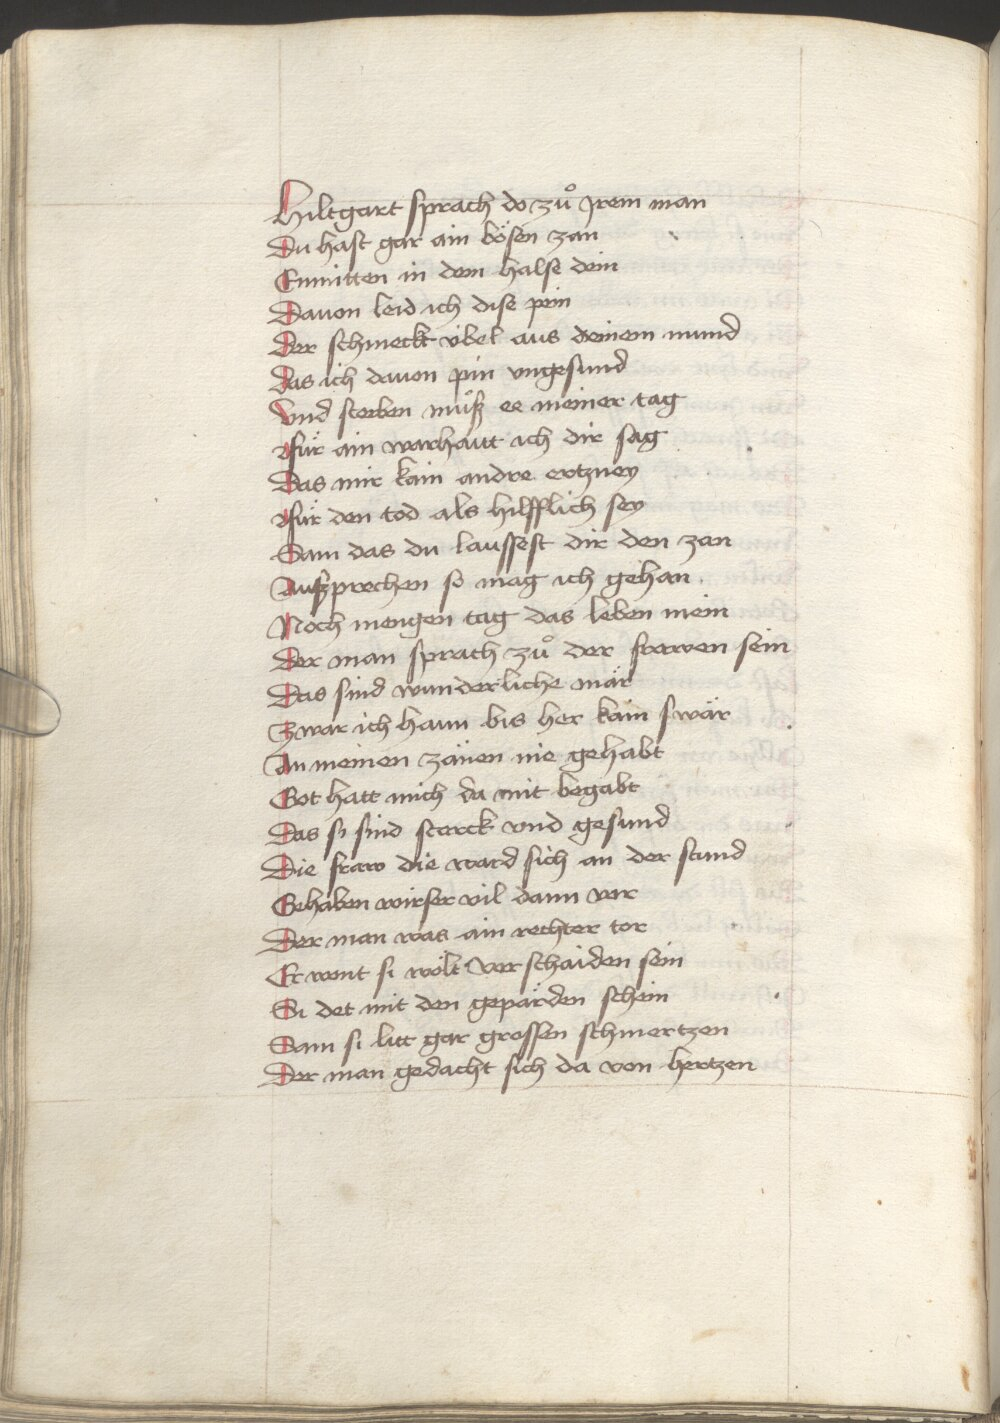 Hiltgart sprach do zů Jrem man
Du hast gar ain bösen zan
Enmitten in dem halse dein
Dauon leid ich dise pein
Der schmeckt vbel aus deinem mund
Das ich dauon pin vngesund
Vnd sterben můß ee meiner tag
Für ain warhaitt ich dir sag
Das mir kain andre ertzney
Für den tod als hilfflich sey
Sam das du laussest dir den zan
Außprechen so mag ich gehan
Noch mengen tag das leben mein
Der man sprach zů der frawen sein
Das sind wunderliche mär
Zwar ich haun bis her kain swär
An meinen zänen nie gehabt
Got hatt mich da mit begabt
Das si sind starck vnd gesund
Die fraw die ward sich an der stund
Gehaben wirser vil dann vor
Der man was ain rechter tor
Er wont si wölt verschaiden sein
Si det mit den gepärden schein
Sam si litt gar grossen schmertzen
Der man gedacht sich da von hertzen